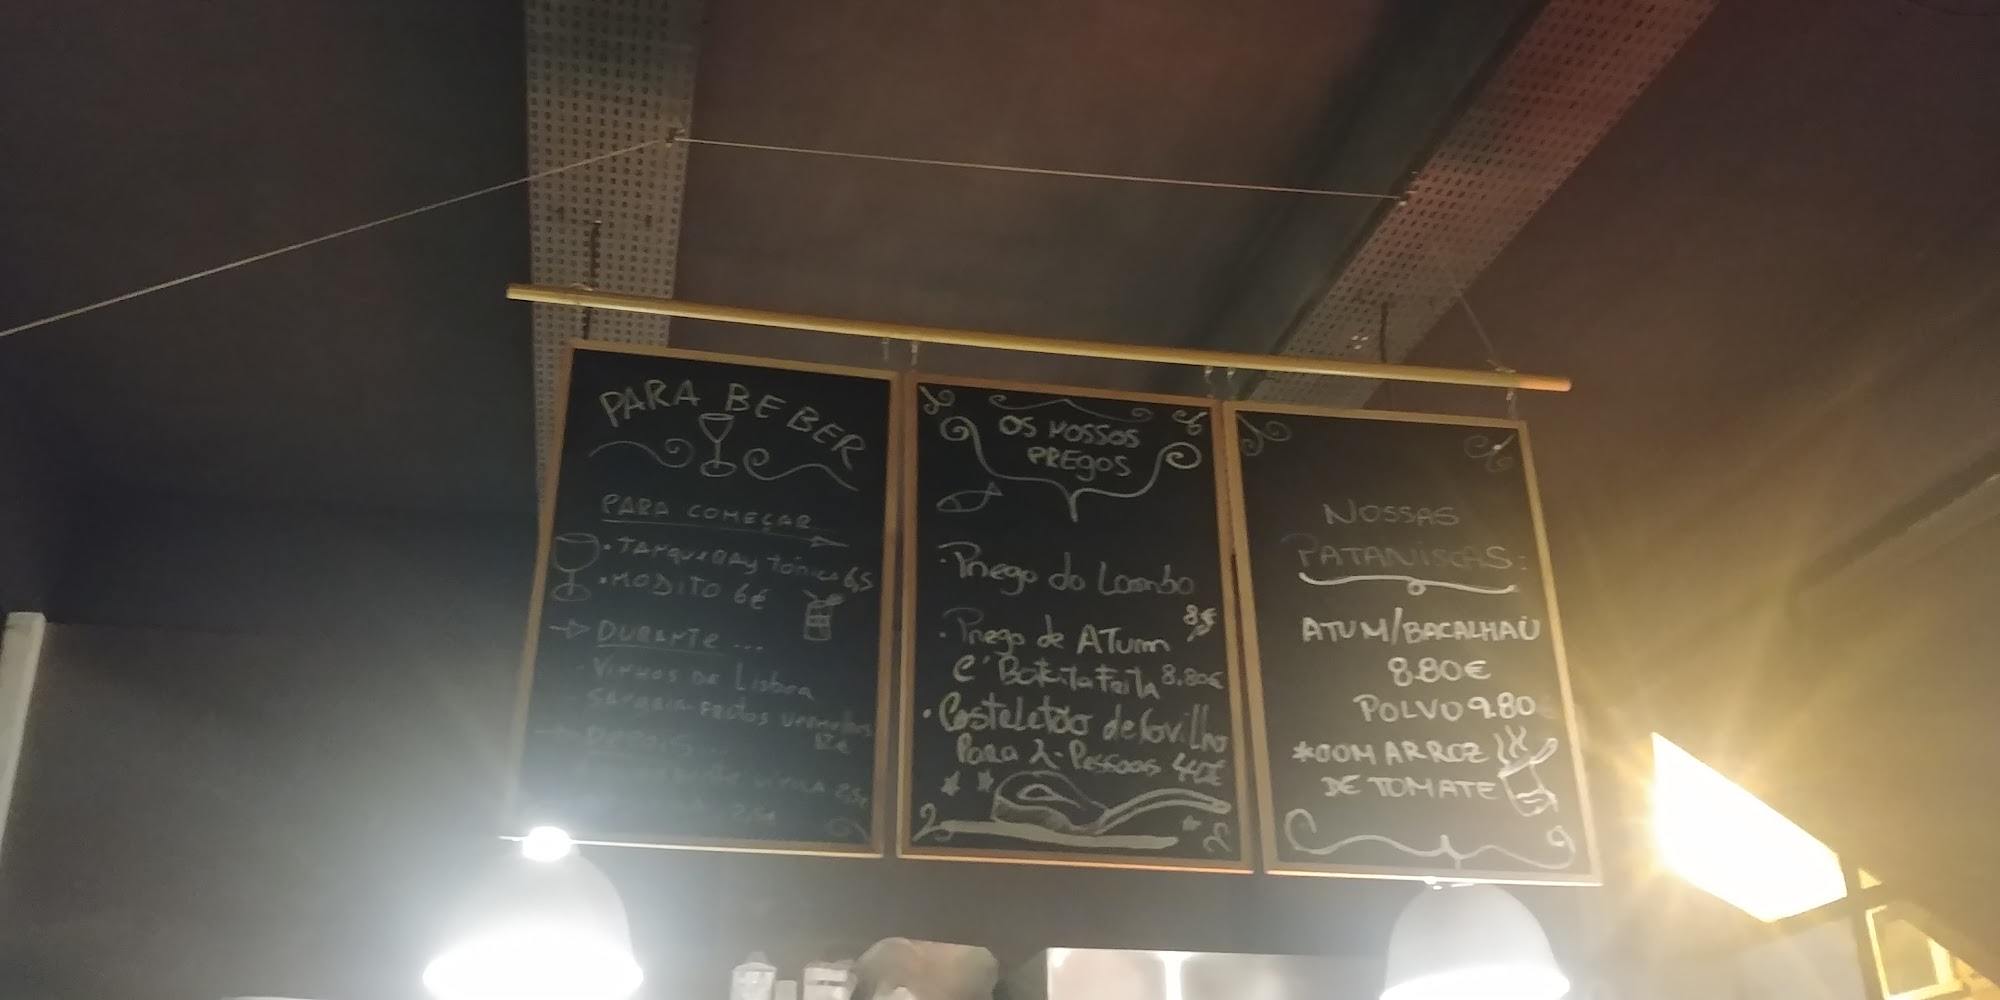 PARA BEBER
PARA COMEÇAR
· TANQUERAY tónica 6,5
· MOJITO 6€
→ DURANTE ...
· VINHOS DE Lisboa
SANGRIA FRUTOS VERMELHOS
12€
→ DEPOIS...
2,5€
2,5€
OS NOSSOS
PREGOS
· Prego do Lombo
8€
· Prego de ATum
C/ BATATA FRITA 8.80€
· Costeletão de Novilho
Para 2 Pessoas 40€
NOSSAS
PATANISCAS:
ATUM/BACALHAU
8.80€
POLVO 9.80€
*COM ARROZ
DE TOMATE